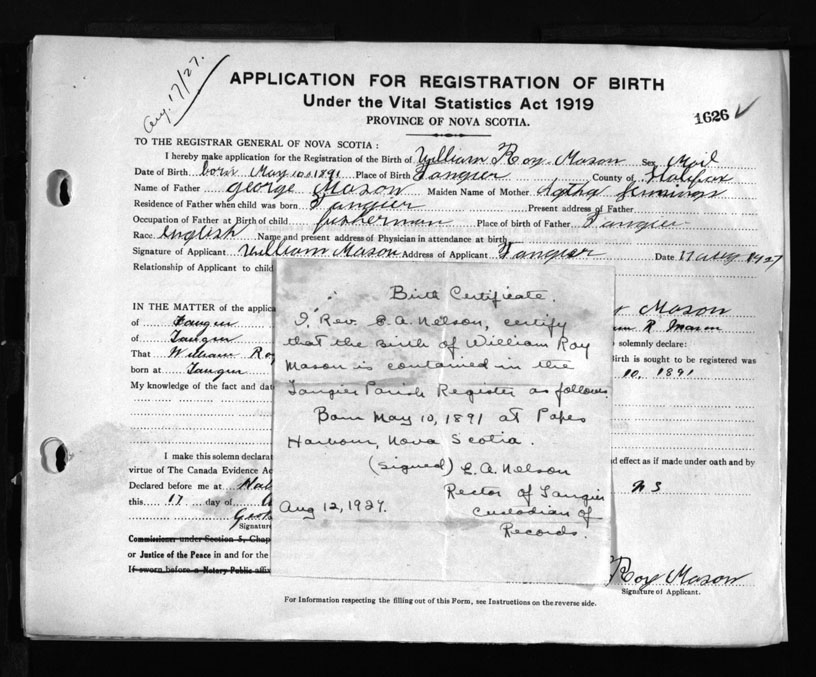 Aug. 17/27.
APPLICATION FOR REGISTRATION OF BIRTH
Under the Vital Statistics Act 1919
PROVINCE OF NOVA SCOTIA.
1626
TO THE REGISTRAR GENERAL OF NOVA SCOTIA:
I hereby make application for the Registration of the Birth of William Roy Mason Sex Mail
Date of Birth born May 10th 1891 Place of Birth Tangier County of Halifax
Name of Father george Mason Maiden Name of Mother Jennings
Residence of Father when child was born Tangier Present address of Father
Occupation of Father at Birth of child fisherman Place of birth of Father Tangier
Race english Name and present address of Physician in attendance at birth
Signature of Applicant William Mason Address of Applicant Tangier Date 17 aug 1927
Relationship of Applicant to child
IN THE MATTER of the applica Mason
of Tangier R Mason
of Tangier solemnly declare:
That William Roy Birth is sought to be registered was
born at Tangier 10, 1891
My knowledge of the fact and dat
Birth Certificate.
I, Rev. E. A. Nelson, certify
that the birth of William Roy
Mason is contained in the
Tangier Parish Register as follows.
Born May 10, 1891 at Popes
Harbour, Nova Scotia.
(signed) E. A. Nelson
Rector of Tangier
Custodian of
Records.
Aug 12, 1927.
I make this solemn declarat d effect as if made under oath and by
virtue of The Canada Evidence Ac
Declared before me at N S
this 17 day of
Signature
Commissioner under Section 5, Chap
or Justice of the Peace in and for the
If sworn before a Notary Public affix
Roy Mason
Signature of Applicant.
For Information respecting the filling out of this Form, see Instructions on the reverse side.